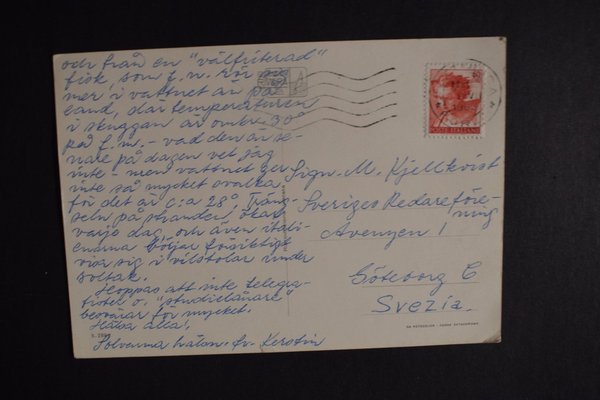 och från en "välfriterad"
fisk, som f.n. rör sig
mer i vattnet än på
land, där temperaturen
i skuggan är omkr. 30°
på f.m. - vad den är se-
nare på dagen vet jag
inte - men vattnet ger
inte så mycket svalka
för det är c:a 28°. Träng-
seln på stranden ökar
varje dag, och även itali-
enarna börjar försiktigt
visa sig i vilstolar under
soltak.
Hoppas att inte telegra-
o. "studielånare"
besvärar för mycket.
Hälsa alla!
Solvarma hälsn. fr. Kerstin
Sign. M. Kjellkvist
Sveriges Redareföre-
ning
Avenyen 1
Göteborg C
Svezia.
POSTE ITALIANE